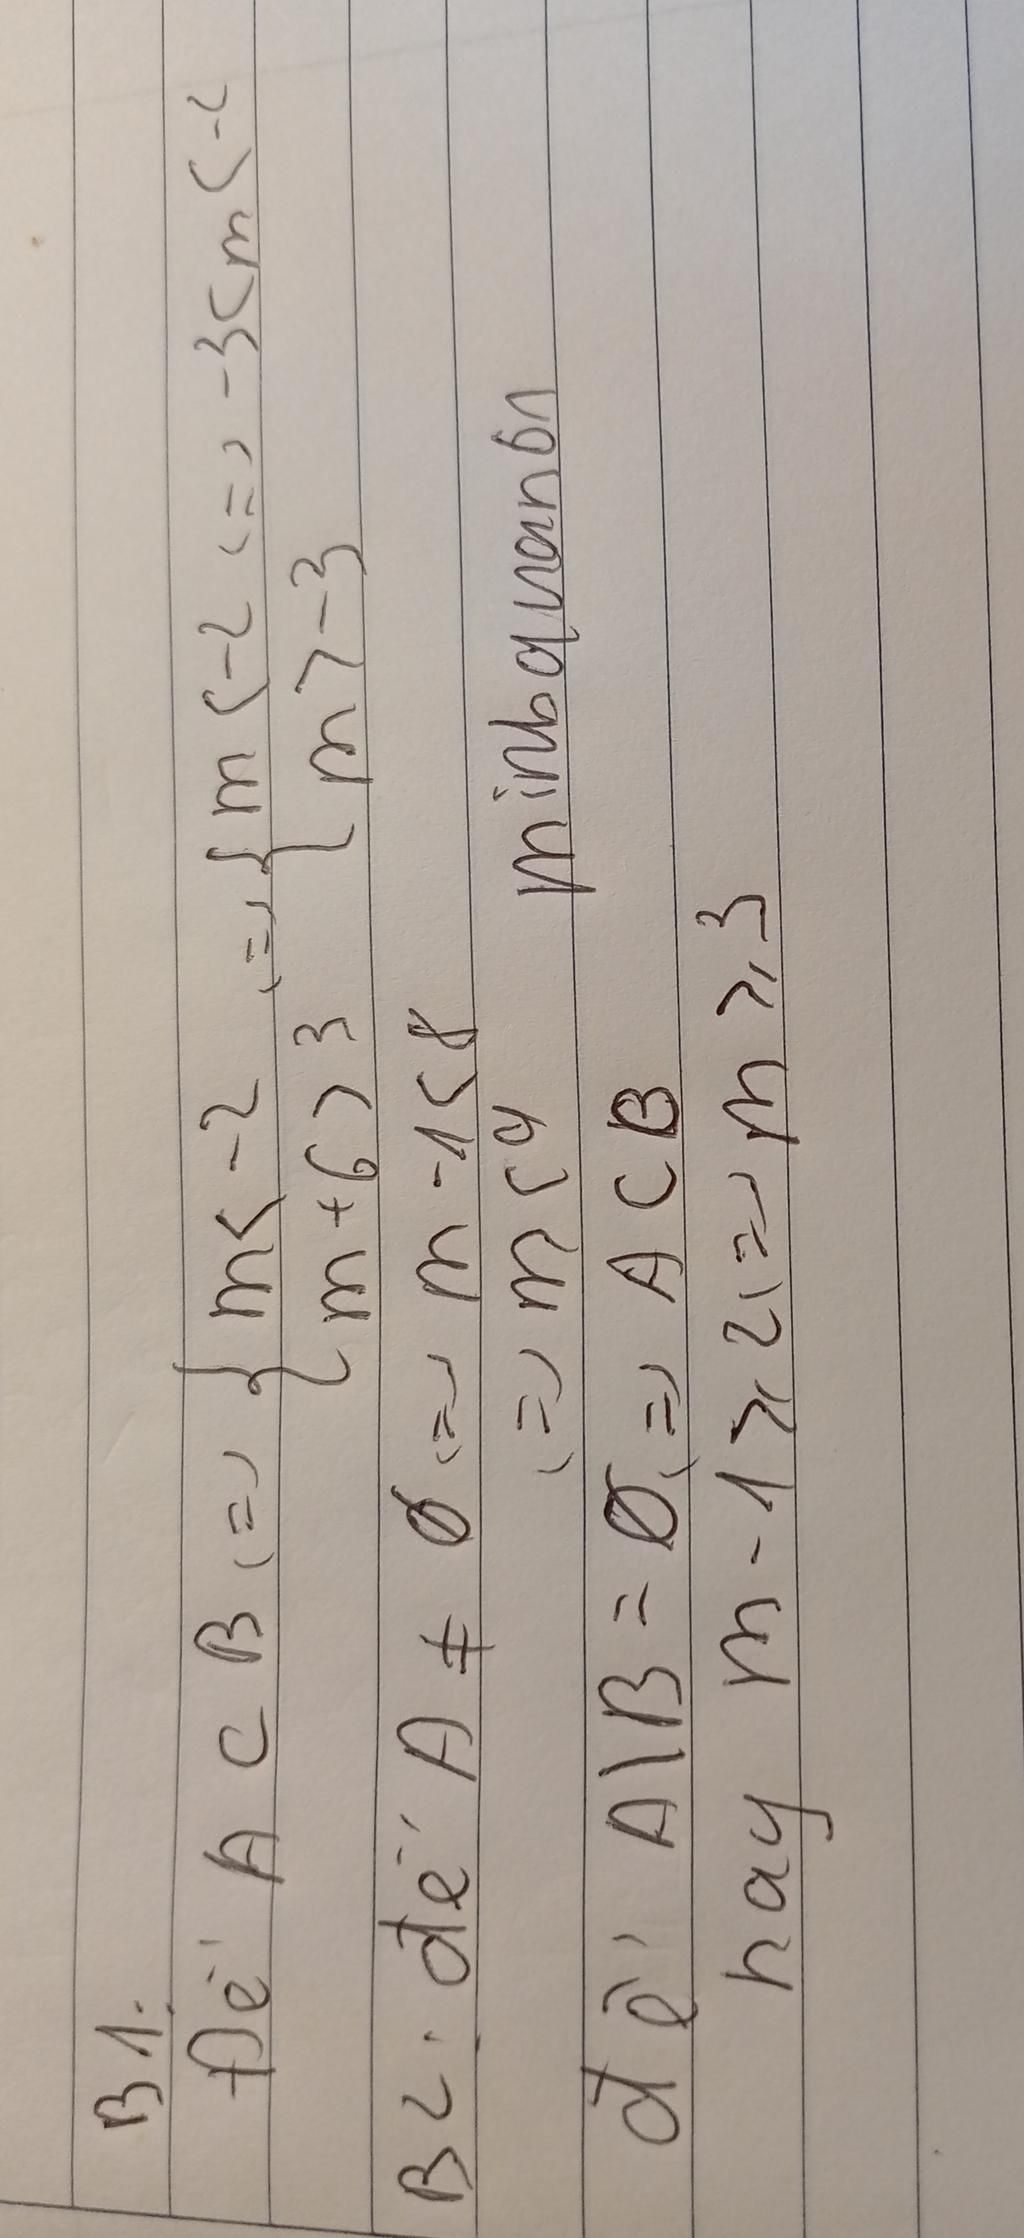 B1.
Để A ⊂ B <=> { m < -2 <=> { m < -2 <=> -3 < m < -2
{ m + 6 > 3 { m > -3
B2. để A ≠ ∅ <=> m - 1 < 8
<=> m < 9 minbquan61
để A \ B = ∅ <=> A ⊂ B
hay m - 1 ⩾ 2 <=> m ⩾ 3